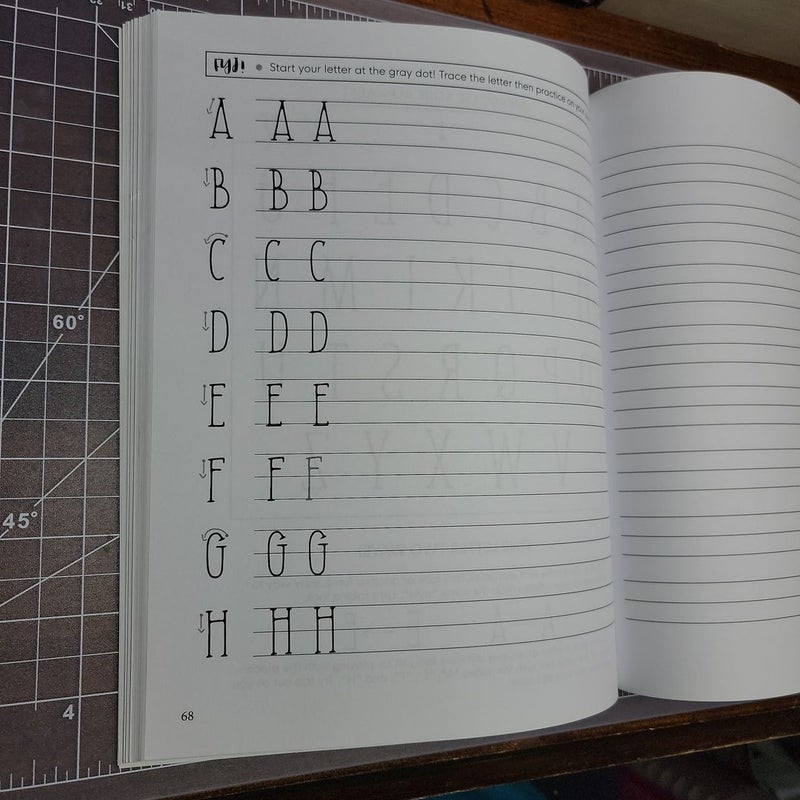 FYI! Start your letter at the gray dot! Trace the letter then practice on your
A A A
B B B
C C C
D D D
E E E
F F F
G G G
H H H
68
60°
45°
4
31